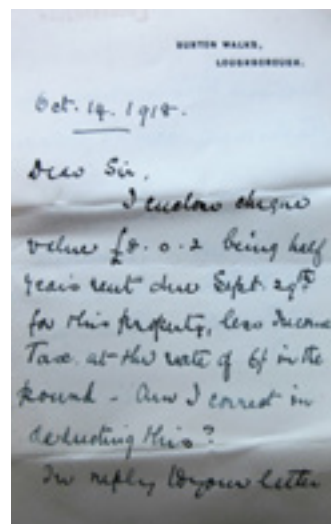 BURTON WALKS,
LOUGHBOROUGH.
Oct. 14. 1918.
Dear Sir,
I enclose cheque
value £8. 0. 2 being half
years rent due Sept. 29th
for this property, less Income
Tax at the rate of 6/ in the
pound - Am I correct in
deducting this?
In reply to your letter